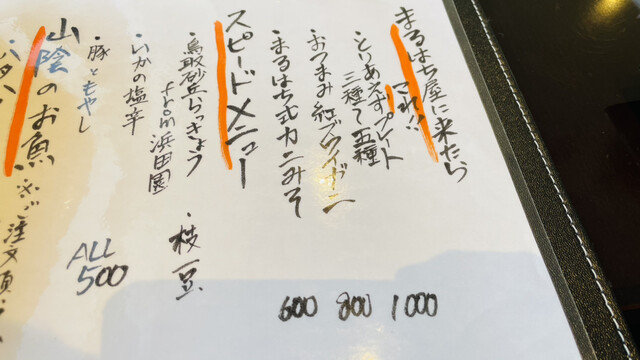 まるはち屋に来たら
コレ!!
とりあえずプレート
三種て五種
1000
おつまみ紅ズワイガニ
800
まるはち式カニみそ
600
スピードメニュー
・鳥取砂丘らっきょう
from 浜田園
・枝豆
・いかの塩辛
・豚ともやし
ALL
500
山陰のお魚